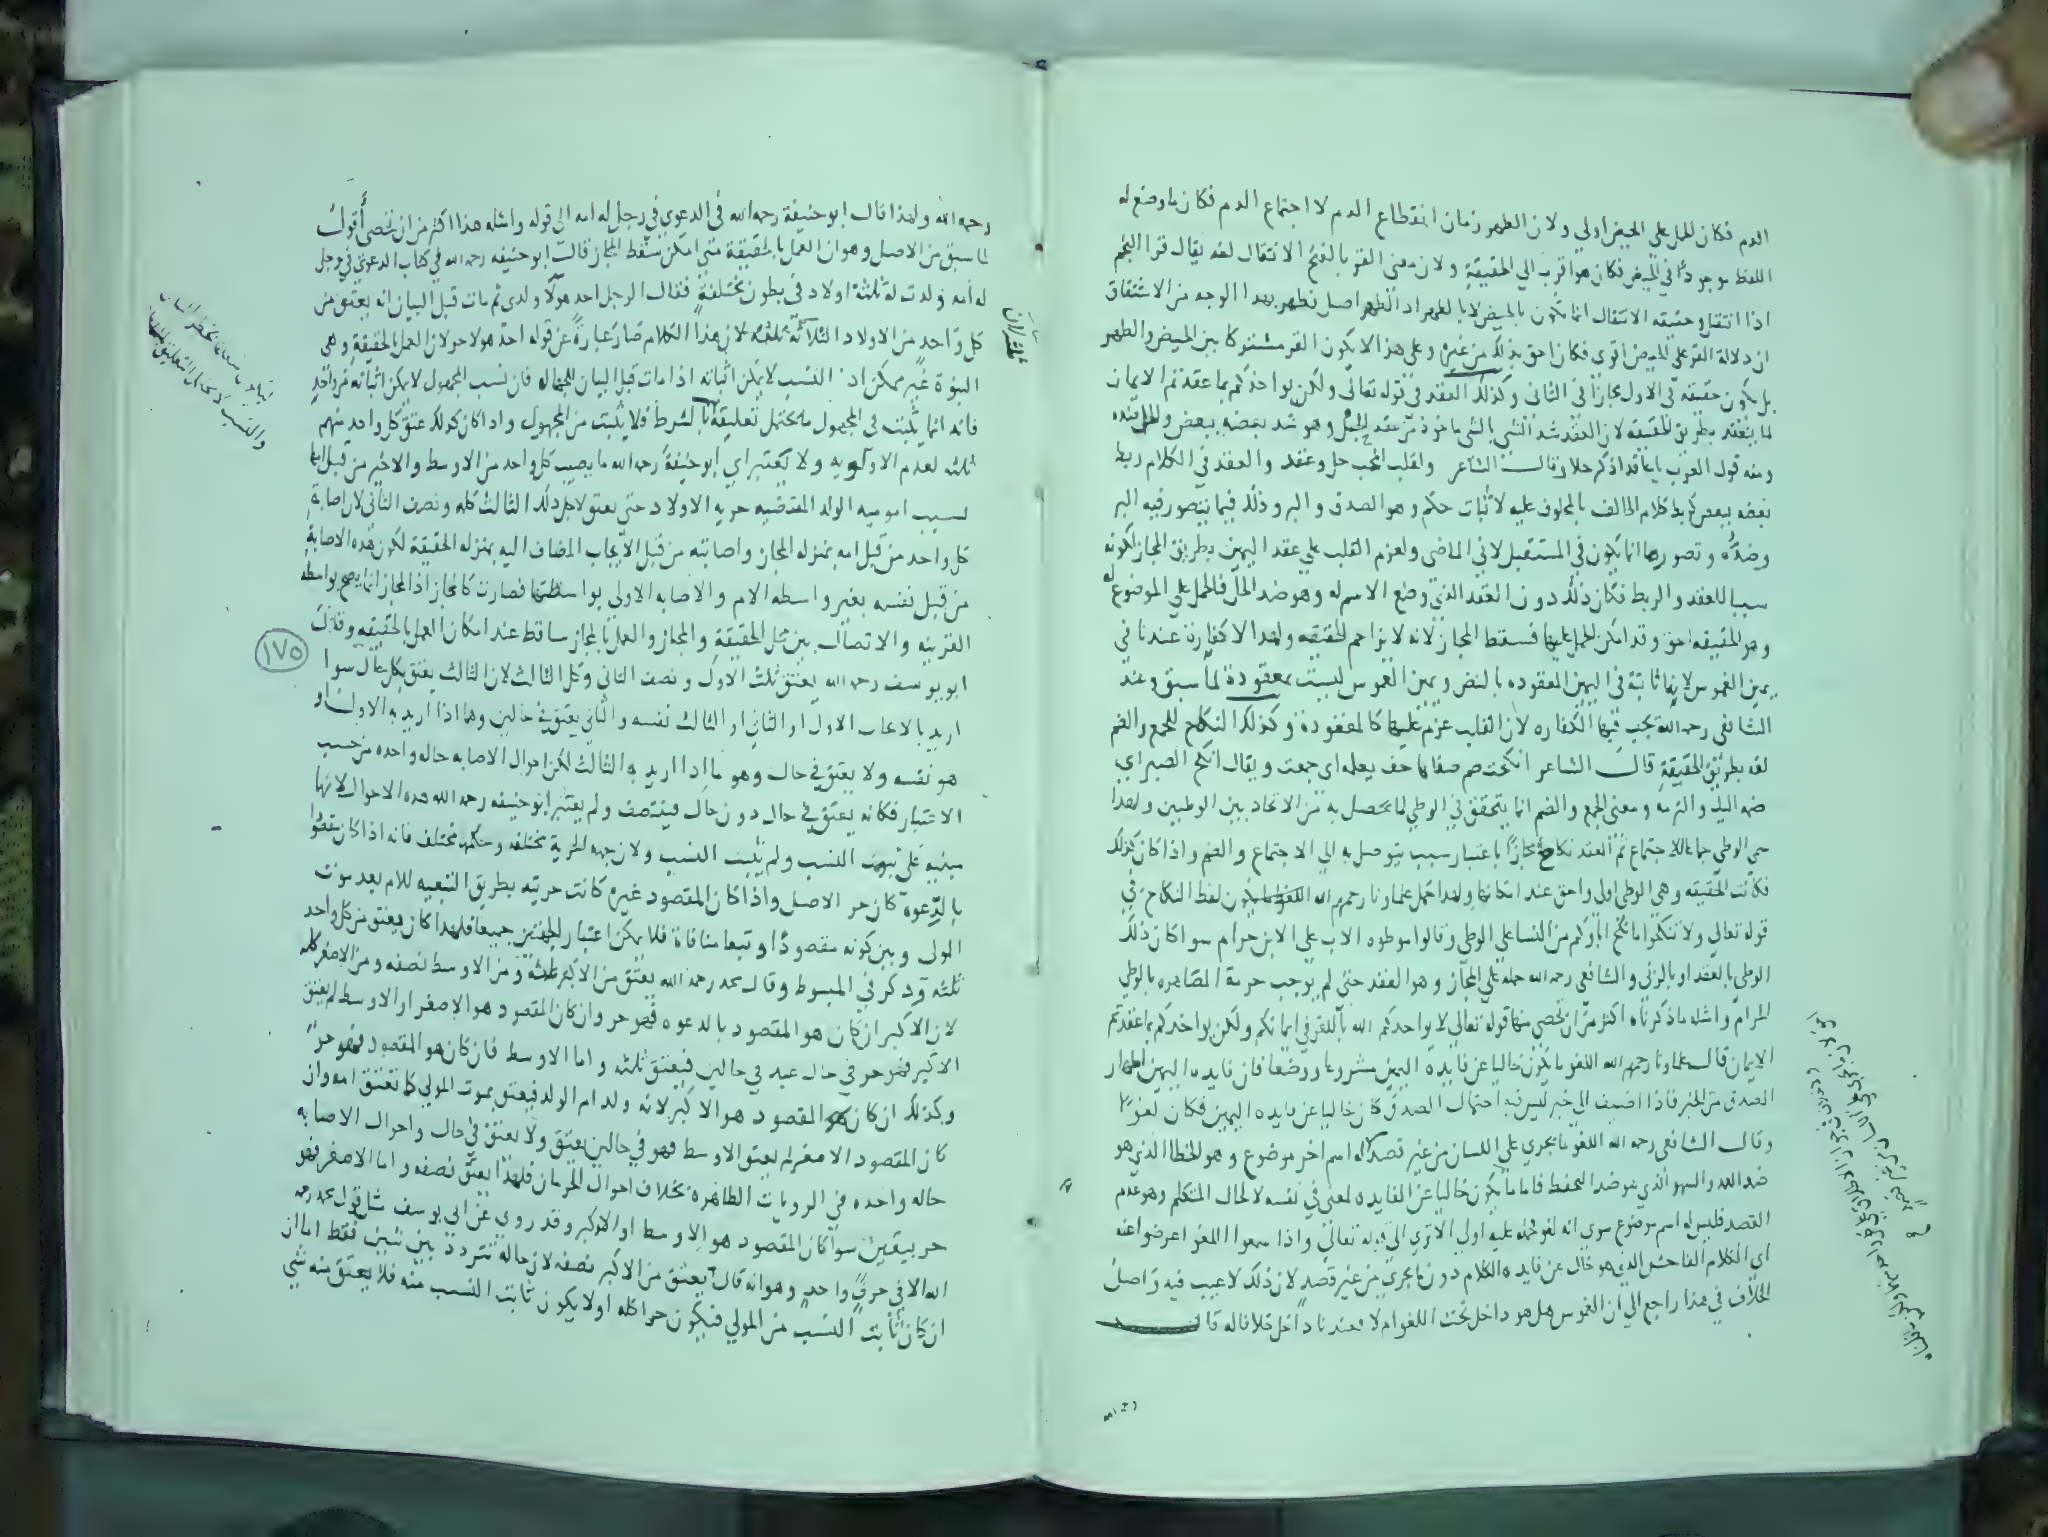 الدم فكان الحمل على الحيض اولى ولان الطهر زمان انقطاع الدم لا اجتماع الدم فكان ما وضع له
اللفظ موجودا في الحيض فكان هو اقرب الى الحقيقة ولان معنى القرء بالفتح الانتقال لغة يقال قرا النجم
اذا انتقل وحقيقة الانتقال انما تكون بالحيض لا بالطهر اذ الطهر اصل فظهر بهذا الوجه من الاشتقاق
ان دلالة القرء على الحيض اقوى فكان احق بذلك من غيره وعلى هذا لا يكون القرء مشتركا بين الحيض والطهر
بل يكون حقيقة في الاول مجازا في الثاني وكذلك العقد في قوله تعالى ولكن يواخذكم بما عقدتم الايمان
لما ينعقد بطريق الحقيقة لان العقد شد الشي بالشي ماخوذ من عقد الحبل وهو شد بعضه ببعض
ومنه قول العرب يا عاقد اذكر حلا وقال الشاعر ولقلب المحب حل وعقد والعقد في الكلام ربط
بعضه ببعض كربط كلام الحالف بالمحلوف عليه لاثبات حكم وهو الصدق والبر وذلك فيما يتصور فيه البر
وضده وتصورهما انما يكون في المستقبل لا في الماضي ولعزم القلب على عقد اليمين بطريق المجاز لكونه
سببا للعقد والربط فكان ذلك دون العقد الذي وضع الاسم له وهو ضد الحل فالحمل على الموضوع له
وهو الحقيقة احق وقد امكن الحمل عليها فسقط المجاز لانه لا يزاحم الحقيقة ولهذا لا كفارة عندنا في
يمين الغموس لانها ثابتة في اليمين المعقودة بالنص ويمين الغموس ليست بمعقودة لما سبق وعند
الشافعي رحمه الله تجب فيها الكفاره لان القلب عزم عليها كالمعقودة وكذلك النكاح للجمع والضم
لغة بطريق الحقيقة قال الشاعر انكحت صم صفاها خف يعمله اي جمعت ويقال انكح الصبر اي
ضمه اليك والتزمه ومعنى الجمع والضم انما يتحقق في الوطي لما يحصل به من الاتحاد بين الوطيين ولهذا
سمي الوطي جماعا للاجتماع ثم العقد نكاح مجازا باعتبار سبب يتوصل به الى الاجتماع والضم واذا كان كذلك
فكانت الحقيقة وهي الوطي اولى واحق عند امكانها ولهذا حمل علماونا رحمهم الله لفظ النكاح في
قوله تعالى ولا تنكحوا ما نكح اباوكم من النسا على الوطي وقالوا موطوه الاب على الابن حرام سوا كان ذلك
الوطي بالعقد او بالزنى والشافعي رحمه الله حمله على المجاز وهو العقد حتى لم يوجب حرمة المصاهره بالوطي
الحرام وامثله ما ذكرناه اكثر من ان تحصى منها قوله تعالى لا يواخذكم الله باللغو في ايمانكم ولكن يواخذكم بما عقدتم
الايمان قال علماونا رحمهم الله اللغو ما يكون خاليا عن فايدة اليمين مشروعا ووضعا فان فايده اليمين اظهار
الصدق من الخبر فاذا اضيف الى خبر ليس فيه احتمال الصدق كان خاليا عن فايده اليمين فكان لغوا
وقال الشافعي رحمه الله اللغو ما يجري على اللسان من غير قصد له اسم اخر موضوع وهو الخطا الذي هو
ضد العمد والسهو الذي هو ضد التحفظ فاما ما يكون خاليا عن الفايده لمعنى في نفسه لا لحال المتكلم وهو عدم
القصد فليس له اسم موضوع سوى انه لغو فحمله عليه اولى الا ترى الى قوله تعالى واذا سمعوا اللغو اعرضوا عنه
اي الكلام الفاحش الذي هو خال عن فايده الكلام دون ما يجري من غير قصد لان ذلك لا عيب فيه واصل
الخلاف في هذا راجع الى ان الغموس هل هو داخل تحت اللغو ام لا فعندنا داخل خلافا له قال
رحمه الله
رحمه الله ولهذا قال ابو حنيفة رحمه الله في الدعوى في رجل له امه الى قوله وامثله هذا اكثر من ان تحصى اقول
لما سبق من الاصل وهو ان العمل بالحقيقة متى امكن سقط المجاز قال ابو حنيفه رحمه الله في كتاب الدعوى في رجل
له امه ولدت له ثلثة اولاد في بطون مختلفة فقال الرجل احد هولا ولدي ثم مات قبل البيان انه يعتق من
كل واحد من الاولاد الثلاثة ثلثه لان هذا الكلام صار عبارة عن قوله احد هولا حر لان العمل بالحقيقة وهي
البنوة غير ممكن اذ النسب لا يمكن اثباته اذا مات قبل البيان فان نسب المجهول لا يمكن اثباته من واحد
فانه انما يثبت في المجهول ما يحتمل تعليقه بالشرط فلا يثبت من المجهول واذا كان كذلك عتق كل واحد منهم
ثلثه لعدم الاولويه ولا يعتبر اي ابو حنيفة رحمه الله ما يصيب كل واحد من الاوسط والاخير من قبل امها
لسبب امومية الولد المقتضيه حرية الاولاد حتى يعتق لاجل ذلك الثالث كله ونصف الثاني لان اصابة
كل واحد من قبل امه بمنزله المجاز واصابته من قبل الايجاب المضاف اليه بمنزله الحقيقة لكون هذه الاصابة
من قبل نفسه بغير واسطه الام والاصابه الاولى بواسطتها فصارت كالمجاز اذ المجاز انما يصح بواسطه
القرينه والاتصال بين محل الحقيقة والمجاز والعمل بالمجاز ساقط عند امكان العمل بالحقيقه وقال
ابو يوسف رحمه الله يعتق ثلث الاول ونصف الثاني وكل الثالث لان الثالث يعتق بكل حال سوا
اريد بالايجاب الاول او الثاني او الثالث نفسه والثاني يعتق في حالين وهما اذا اريد به الاول او
هو نفسه ولا يعتق في حال وهو ما اذا اريد به الثالث لكن احوال الاصابه حاله واحده من حيث
الاعتبار فكانه يعتق في حال دون حال فينتصف ولم يعتبر ابو حنيفه رحمه الله هذه الاحوال لانها
مبنيه على ثبوت النسب ولم يثبت النسب ولان جهه الحرية مختلفه وحكمه مختلف فانه اذا كان مقصودا
بالدعوة كان حر الاصل واذا كان المقصود غيره كانت حريته بطريق التبعيه للام بعد موت
المولى وبين كونه مقصودا وتبعا منافاة فلا يمكن اعتبار الجهتين جميعا فلهذا كان يعتق من كل واحد
ثلثه وذكر في المبسوط وقال محمد رحمه الله يعتق من الاكبر ثلثه ومن الاوسط نصفه ومن الاصغر كله
لان الاكبر ان كان هو المقصود بالدعوه فهو حر وان كان المقصود هو الاصغر او الاوسط لم يعتق
الاكبر فهو حر في حال عبد في حالين فيعتق ثلثه واما الاوسط فان كان هو المقصود فهو حر
وكذلك ان كان المقصود هو الاكبر لانه ولد ام الولد فيعتق بموت المولى كما تعتق امه وان
كان المقصود الاصغر لم يعتق الاوسط فهو في حالين يعتق ولا يعتق في حال واحوال الاصابه
حاله واحده في الروايات الظاهرة بخلاف احوال الحرمان فلهذا يعتق نصفه واما الاصغر فهو
حر بيقين سوا كان المقصود هو الاوسط او الاكبر وقد روي عن ابي يوسف مثل قول محمد رحمه
الله الا في حرف واحد وهو انه قال يعتق من الاكبر نصفه لان حاله تتردد بين شيئين فقط اما ان
ان كان ثابت النسب من المولى فيكون حرا كله او لا يكون ثابت النسب منه فلا يعتق منه شي
١٧٥